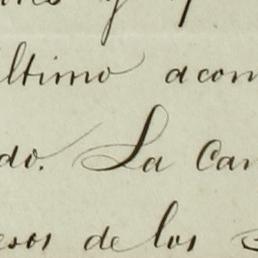 y
último acom
do. La Can
esos de los